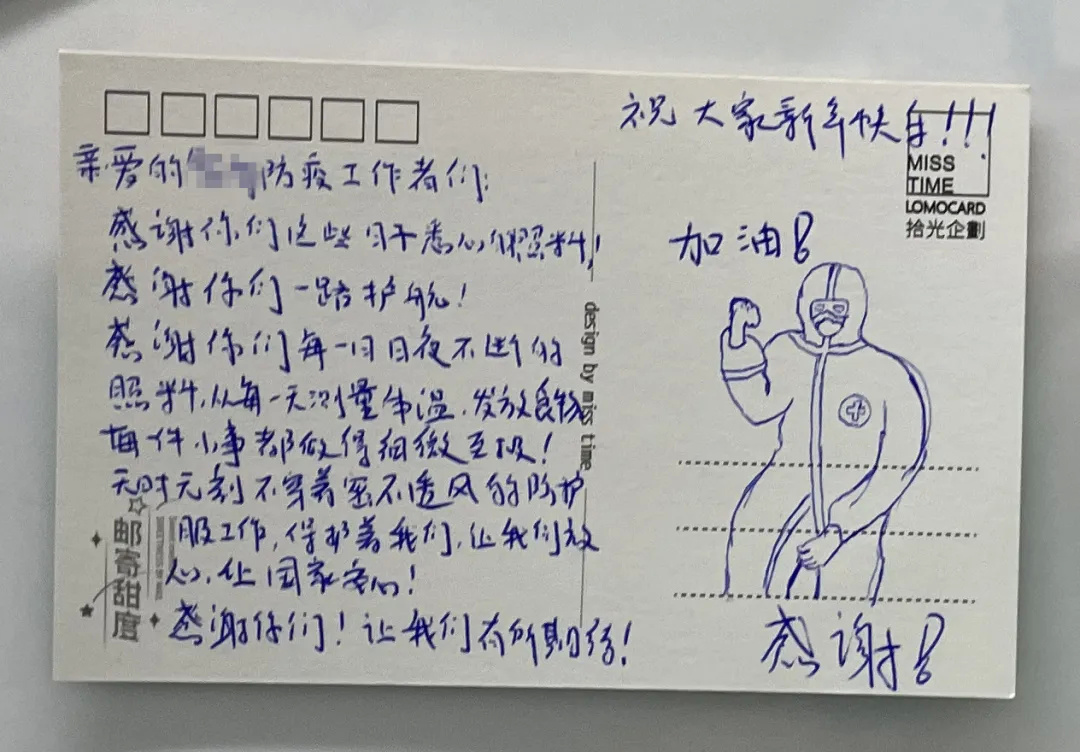 亲爱的防疫工作者们:
感谢你们这些日子悉心的照料!
感谢你们一路护航!
感谢你们每一日日夜不断的
照料,从每一天测量体温、发放食物
每一件小事都做得细微至极!
无时无刻不穿着密不透风的防护
服工作,保护着我们,让我们放
心,让国家安心!
感谢你们!让我们有所期待!
祝大家新年快乐!!!
MISS
TIME
LOMOCARD
拾光企劃
加油!
感谢!
design by miss time
邮寄甜度